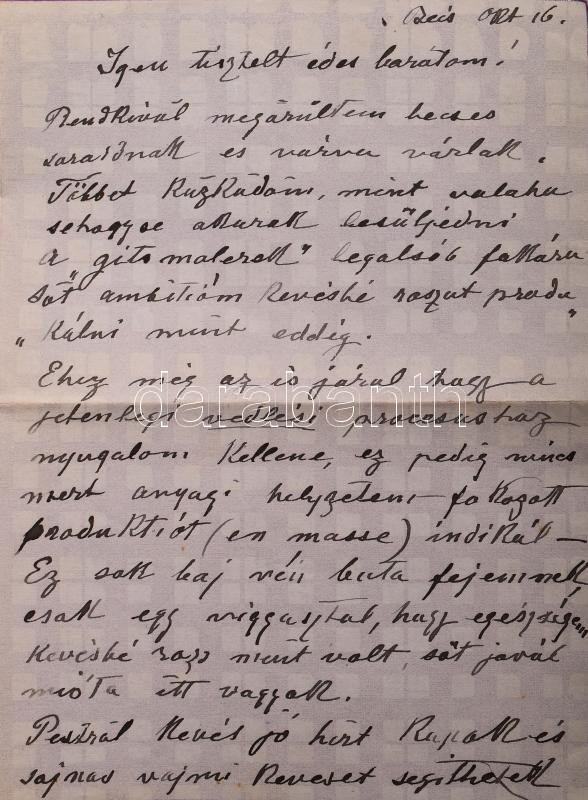 Bécs Okt 16.
Igen tisztelt édes barátom!
Rendkívül megörültem becses
soraidnak es várva várlak.
Többet küzködöm, mint valaha
sehogyse akarok besüljedni
a „gitsmalerek" legalsób fokára
sőt ambitióm kevésbé roszat produ
„kálni mint eddig."
Ehez még az is járul hogy a
jetenlegi vedlési processushoz
nyugalom kellene, ez pedig nincs
mert anyagi helyzetem fokozott
produktiót (en masse) indikál —
Ez sok baj vén buta fejemnek,
csak egy viggasztal, hogy egészségem
kevésbé rosz mint volt, sőt javúl
mióta itt vagyok.
Pestről kevés jó hírt kapok és
sajnos vajmi keveset segithetek
darabanth